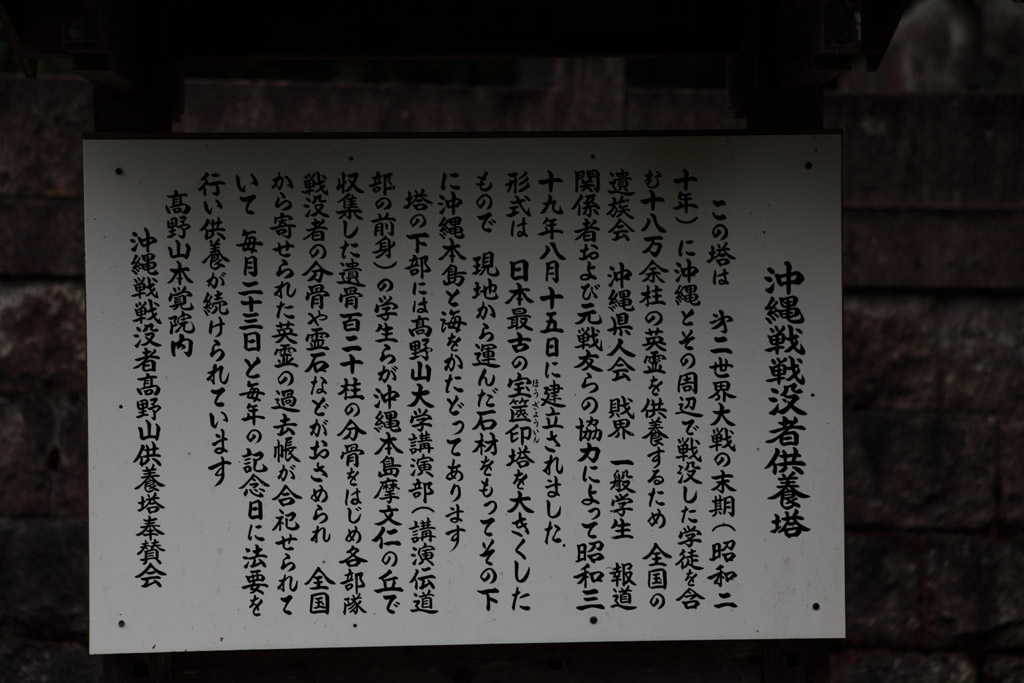 沖縄戦戦没者供養塔
この塔は 第二世界大戦の末期(昭和二
十年)に沖縄とその周辺で戦没した学徒を含
む十八万余柱の英霊を供養するため 全国の
遺族会 沖縄県人会 財界 一般学生 報道
関係者および元戦友らの協力によって昭和三
十九年八月十五日に建立されました
形式は 日本最古の宝篋印塔を大きくした
ほうきょういん
もので 現地から運んだ石材をもってその下
に沖縄本島と海をかたどってあります
塔の下部には高野山大学講演部(講演伝道
部の前身)の学生らが沖縄本島摩文仁の丘で
収集した遺骨百二十柱の分骨をはじめ各部隊
戦没者の分骨や霊石などがおさめられ 全国
から寄せられた英霊の過去帳が合祀せられて
いて 毎月二十三日と毎年の記念日に法要を
行い供養が続けられています
高野山本覚院内
沖縄戦戦没者高野山供養塔奉賛会